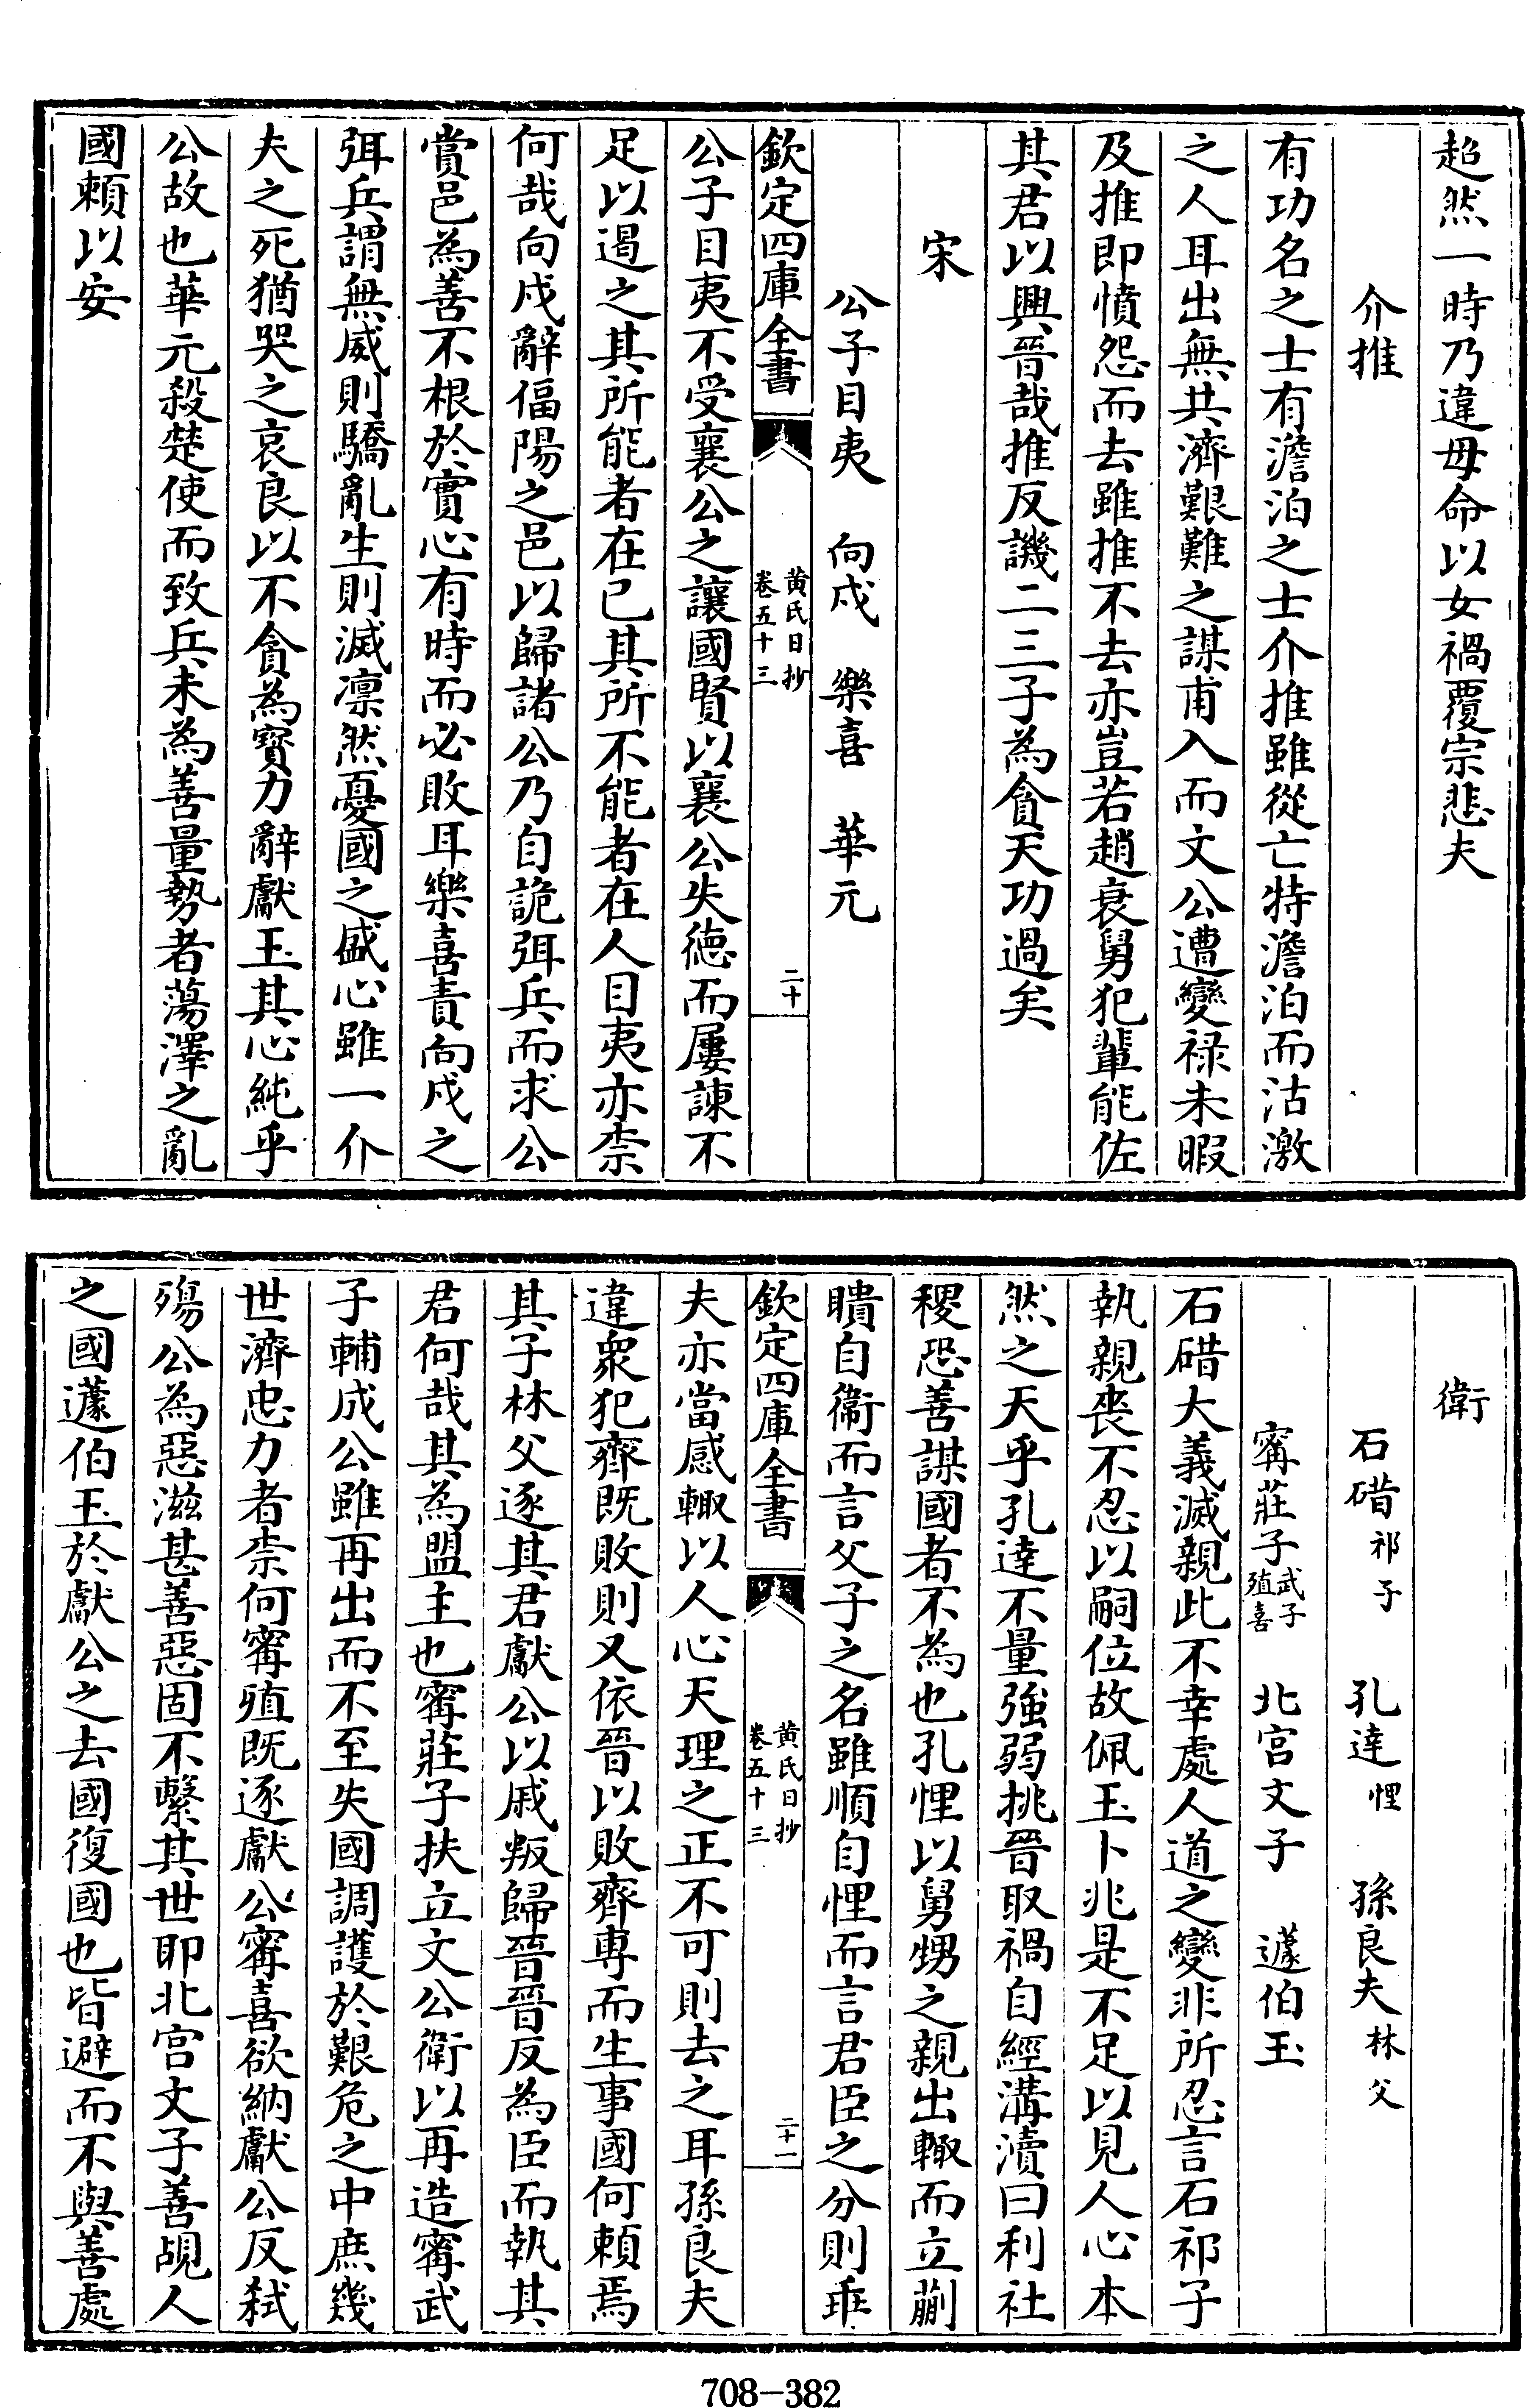 超然一時乃違母命以女禍覆宗悲夫
介推
有功名之士有澹泊之士介推雖從亡特澹泊而沽激
之人耳出無共濟艱難之謀甫入而文公遭變禄未暇
及推即憤怨而去雖推不去亦豈若趙衰舅犯輩能佐
其君以興晉哉推反譏二三子為貪天功過矣
宋
公子目夷 向戌 樂喜 華元
欽定四庫全書 黄氏日抄 卷五十三 二十
公子目夷不受襄公之讓國賢以襄公失徳而屢諫不
足以遏之其所能者在已其所不能者在人目夷亦柰
何哉向戌辭偪陽之邑以歸諸公乃自詭弭兵而求公
賞邑為善不根於實心有時而必敗耳樂喜責向戌之
弭兵謂無威則驕亂生則滅凛然憂國之盛心雖一介
夫之死猶哭之哀良以不貪為寳力辭獻玉其心純乎
公故也華元殺楚使而致兵未為善量勢者蕩澤之亂
國頼以安
衛
石碏祁子 孔達悝 孫良夫林父
甯莊子武子殖喜 北宫文子 蘧伯玉
石碏大義滅親此不幸處人道之變非所忍言石祁子
執親喪不忍以嗣位故佩玉卜兆是不足以見人心本
然之天乎孔達不量強弱挑晉取禍自經溝瀆曰利社
稷恐善謀國者不為也孔悝以舅甥之親出輙而立蒯
聵自衛而言父子之名雖順自悝而言君臣之分則乖
欽定四庫全書 黄氏日抄 卷五十三 二十一
夫亦當感輙以人心天理之正不可則去之耳孫良夫
違衆犯齊既敗則又依晉以敗齊專而生事國何頼焉
其子林父逐其君獻公以戚叛歸晉晉反為臣而執其
君何哉其為盟主也甯莊子扶立文公衛以再造甯武
子輔成公雖再出而不至失國調護於艱危之中庶幾
世濟忠力者柰何甯殖既逐獻公甯喜欲納獻公反弑
殤公為惡滋甚善惡固不繫其世耶北宫文子善覘人
之國蘧伯玉於獻公之去國復國也皆避而不與善處
708-382